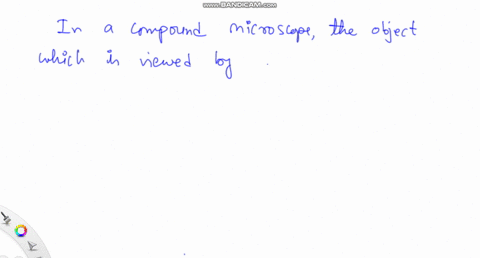 www.BANDICAM.com
In a compound microscope, the object
which is viewed by